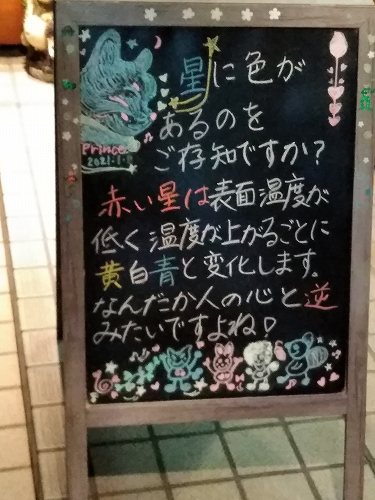 星に色が
あるのを
ご存知ですか?
Prince
2021.1.
赤い星は表面温度が
低く温度が上がるごとに
黄白青と変化します。
なんだか人の心と逆
みたいですよね♡